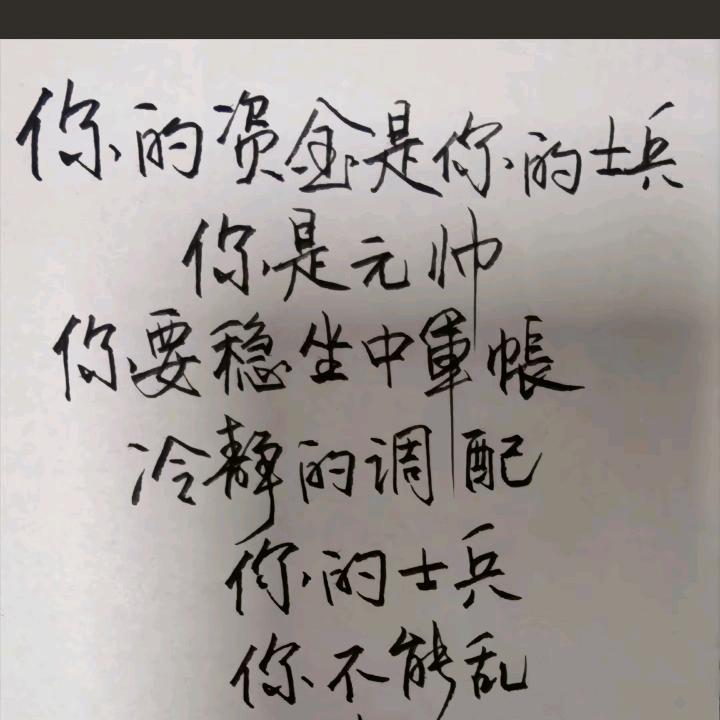 你的资金是你的士兵
你是元帅
你要稳坐中軍帳
冷静的调配
你的士兵
你不能乱